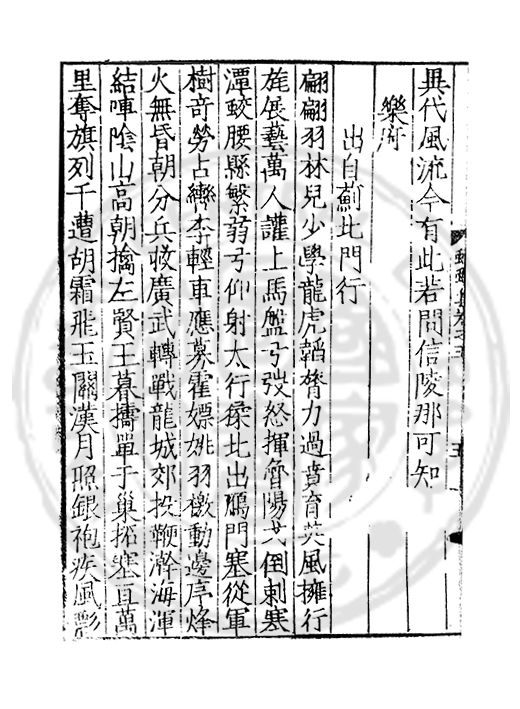 異代風流今有此若問信陵那可知
樂府
出自薊北門行
翩翩羽林兒少學龍虎韜膂力過賁育英風擁行
旄展藝萬人讙上馬盤弓弢怒揮魯陽戈倒刺塞
潭蛟腰縣繁弱弓仰射太行猱北出鴈門塞從軍
樹奇勞占李輕車應募霍嫖姚羽檄動邊序烽
火無昏朝分兵收廣武轉戰龍城郊投鞭瀚海渾
結陰山高朝擒左賢王暮擣單于巢拓塞亘萬
里奪旗列千遭胡霜飛玉關漢月照銀袍疾風